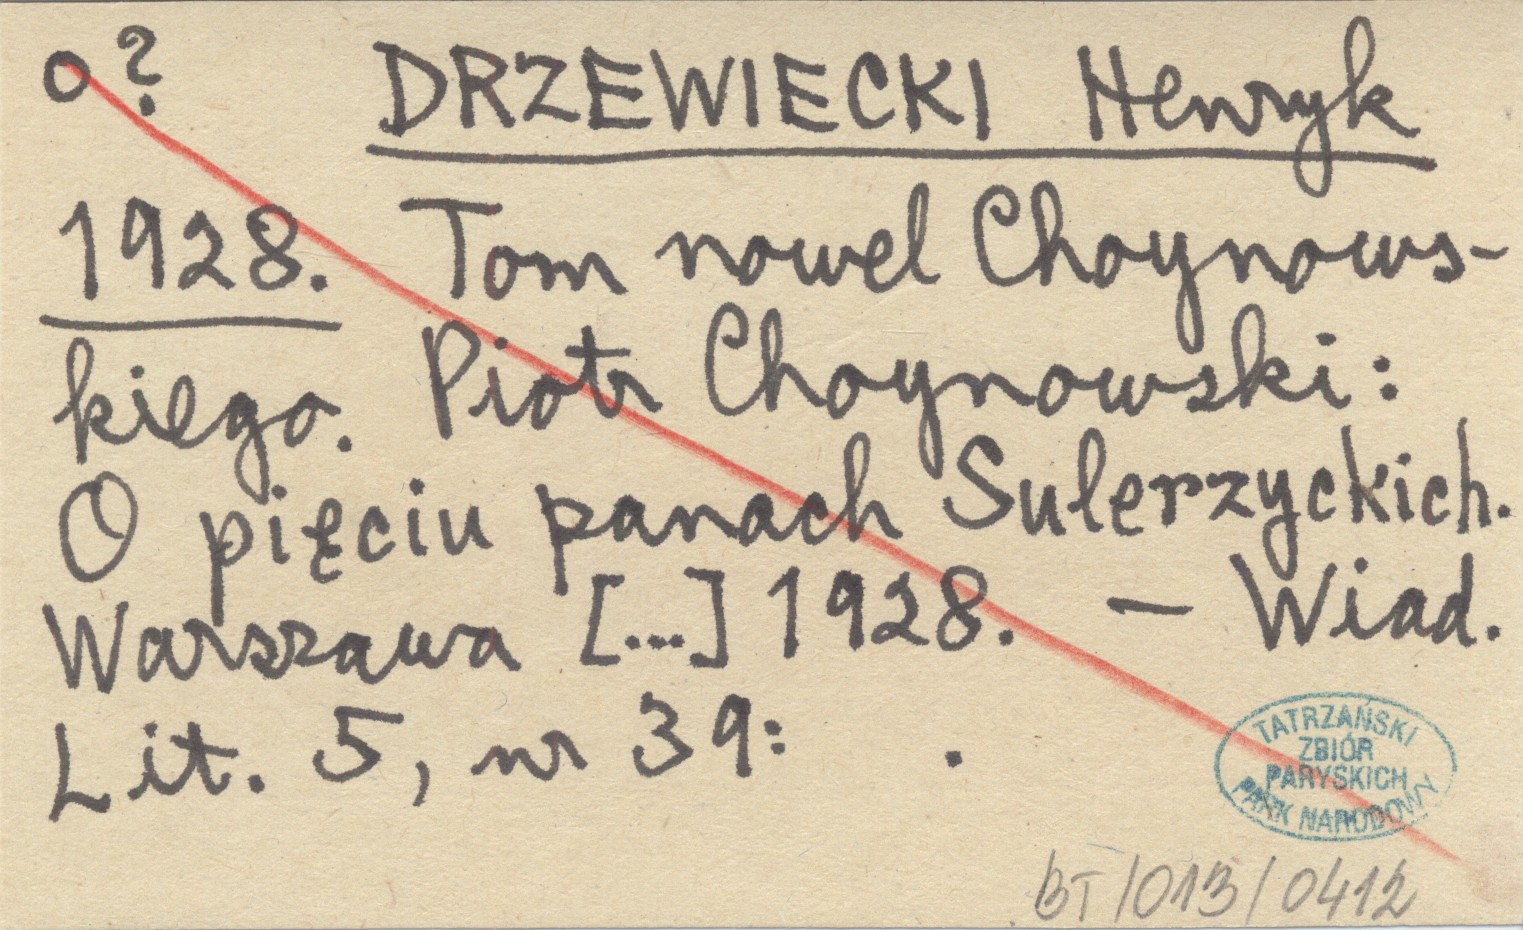 o? DRZEWIECKI Henryk
1928. Tom nowel Choynows-
kiego. Piotr Choynowski:
O pięciu panach Sulerzyckich.
Warszawa [...] 1928. — Wiad.
Lit. 5, nr 39: .
TATRZAŃSKI
ZBIÓR
PARYSKICH
PARK NARODOWY
BT/013/0412